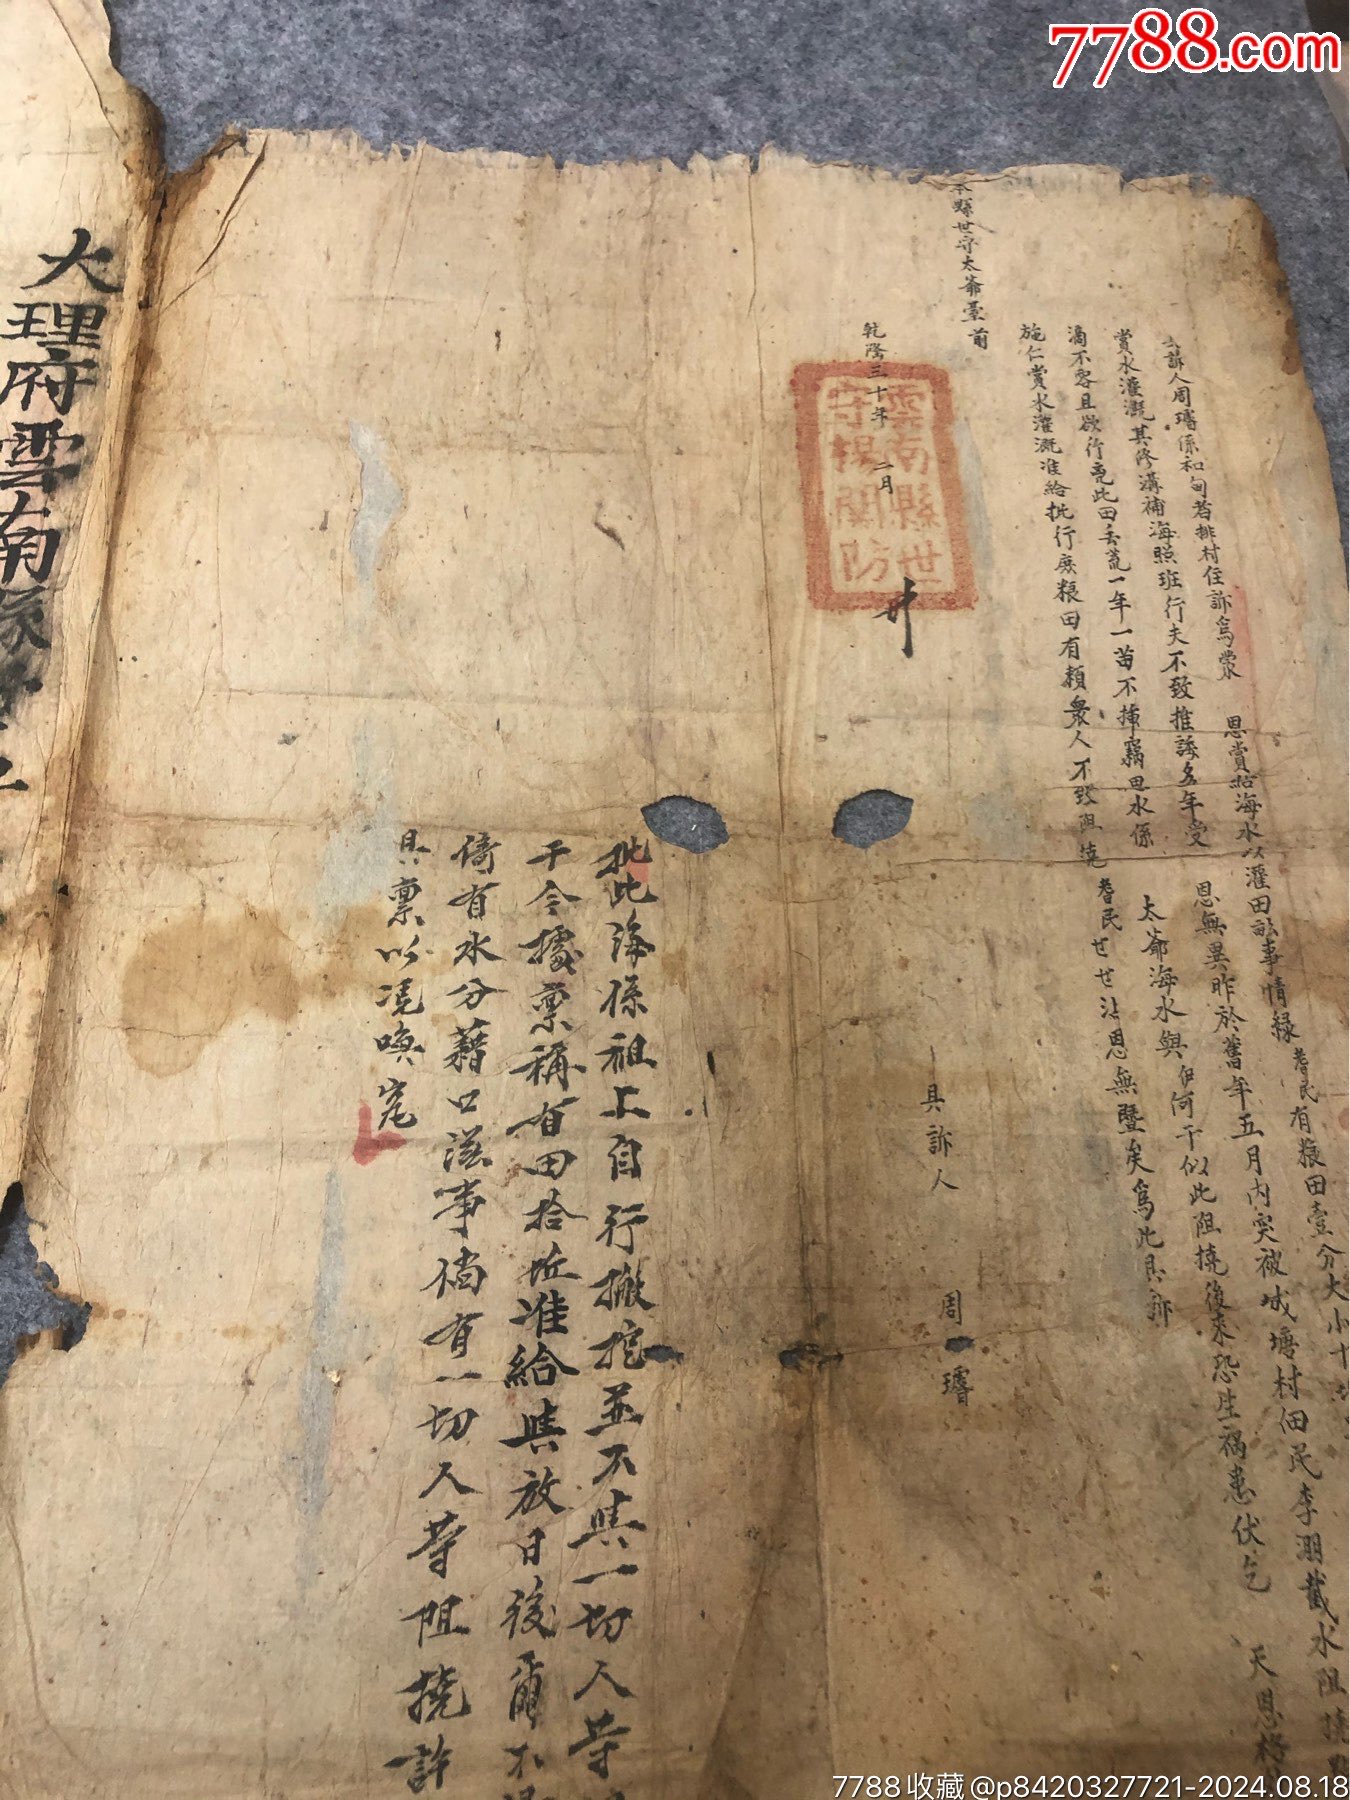 7788.com
具訴人周璿係和甸若排村住訴為蒙 恩賞給海水以灌田訟事情緣耆民有粮田壹分大小十
賞水灌溉其修溝補海照班行夫不致推諉多年受 恩無異昨於舊年五月内突被城塘村佃民李溯截水阻撓
滴不容且欲行堯此田丢荒一年一苗不插竊思水係 太爺海水與伊何干似此阻撓後來恐生禍患伏乞 天恩
施仁賞水灌溉准給批行庶粮田有賴眾人不致阻撓耆民世世沾恩無曁矣為此具訴
本縣世守太爺臺前
具訴人 周璿
乾隆三十年 二月 廿
雲南縣世守楊關防
批此海係祖上自行搬挖並不與一切人等
干今據禀稱有田拾坵准給與放日後爾不
倚有水分藉口滋事倘有一切人等阻撓許
具禀以凴喚究
大理府雲南縣
7788收藏@p8420327721-2024.08.18